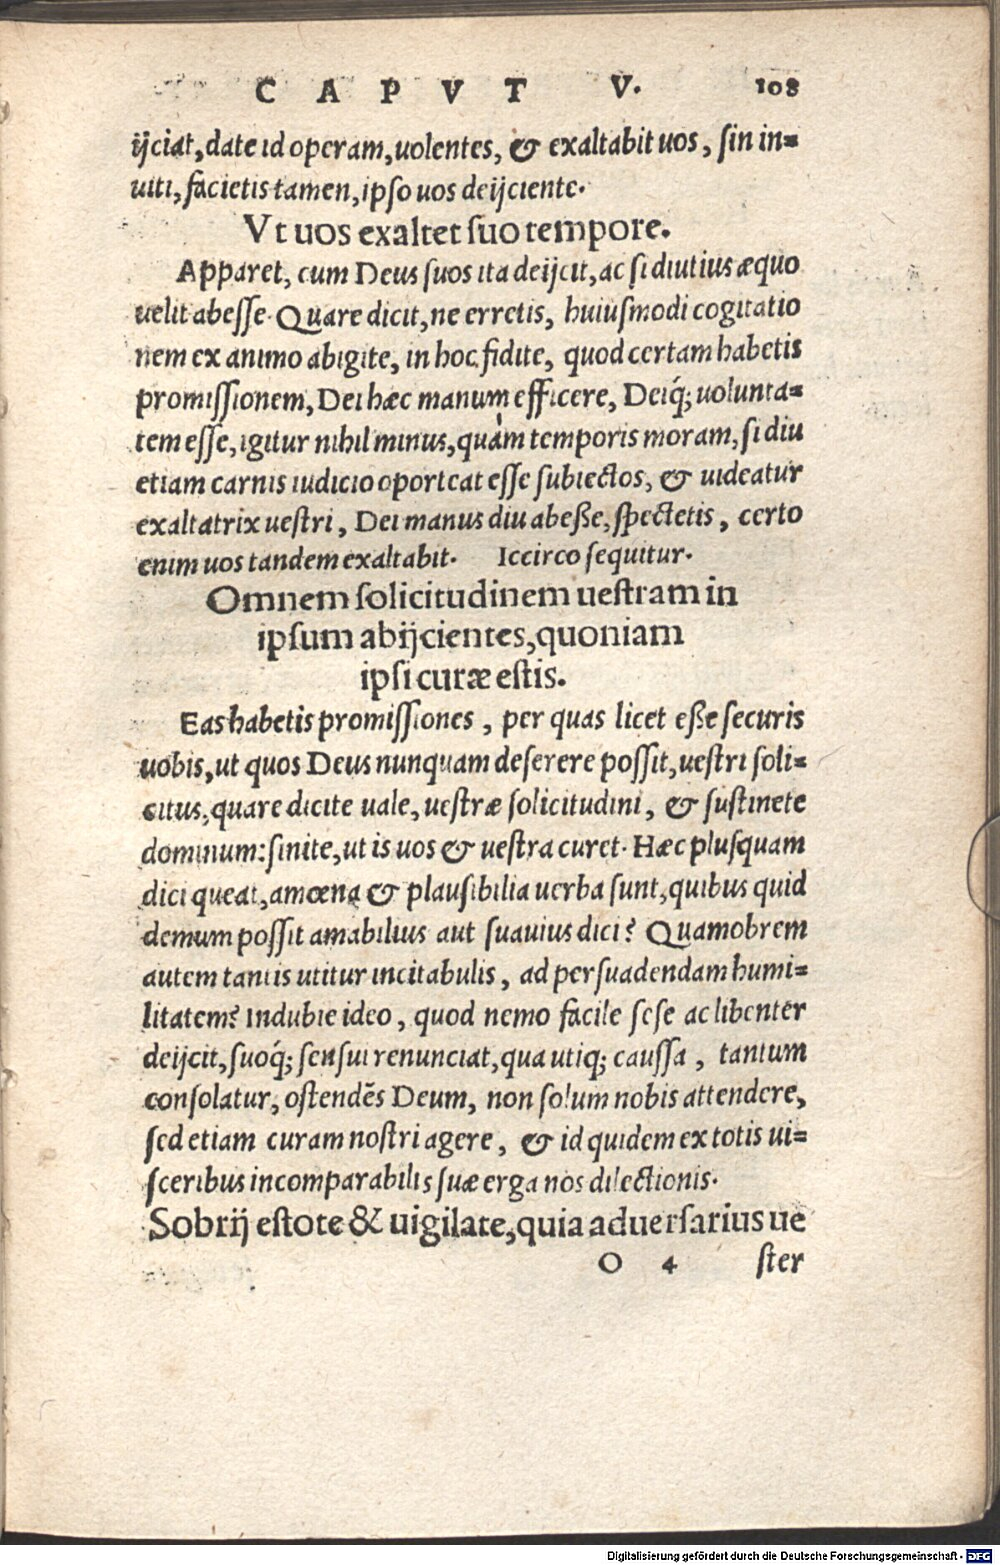 CAPVT V. 108
ijciat, date id operam, uolentes, & exaltabit uos, sin in=
uiti, facietis tamen, ipso uos deijciente.
Vt uos exaltet suo tempore.
Apparet, cum Deus suos ita deijcit, ac si diutius æquo
uelit abesse. Quare dicit, ne erretis, huiusmodi cogitatio
nem ex animo abigite, in hoc fidite, quod certam habetis
promissionem, Dei hæc manum efficere, Deiq́; uolunta=
tem esse, igitur nihil minus, quàm temporis moram, si diu
etiam carnis iudicio oporteat esse subiectos, & uideatur
exaltatrix uestri, Dei manus diu abeße, spectetis, certo
enim uos tandem exaltabit. Iccirco sequitur.
Omnem solicitudinem uestram in
ipsum abijcientes, quoniam
ipsi curæ estis.
Eas habetis promissiones, per quas licet eße securis
uobis, ut quos Deus nunquam deserere possit, uestri soli=
citus, quare dicite uale, uestræ solicitudini, & sustinete
dominum: sinite, ut is uos & uestra curet. Hæc plusquam
dici queat, amœna & plausibilia uerba sunt, quibus quid
demum possit amabilius aut suauius dici? Quamobrem
autem tantis utitur incitabulis, ad persuadendam humi=
litatem? Indubie ideo, quod nemo facile sese ac libenter
deijcit, suoq́; sensui renunciat, qua utiq; caussa, tantum
consolatur, ostendẽs Deum, non solum nobis attendere,
sed etiam curam nostri agere, & id quidem ex totis ui=
sceribus incomparabilis suæ erga nos dilectionis.
Sobrij estote & uigilate, quia aduersarius ue
O 4 ster
Digitalisierung gefördert durch die Deutsche Forschungsgemeinschaft - DFG